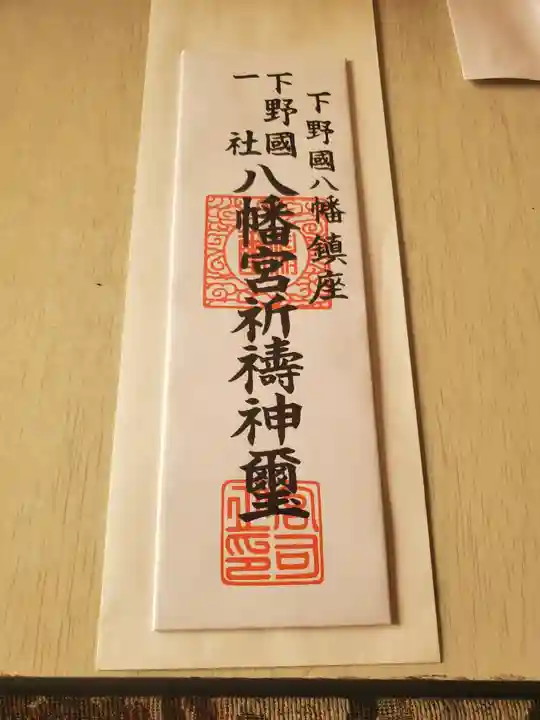 下野國八幡鎮座
下野國
一社
八幡宮祈禱神璽
宮司之印